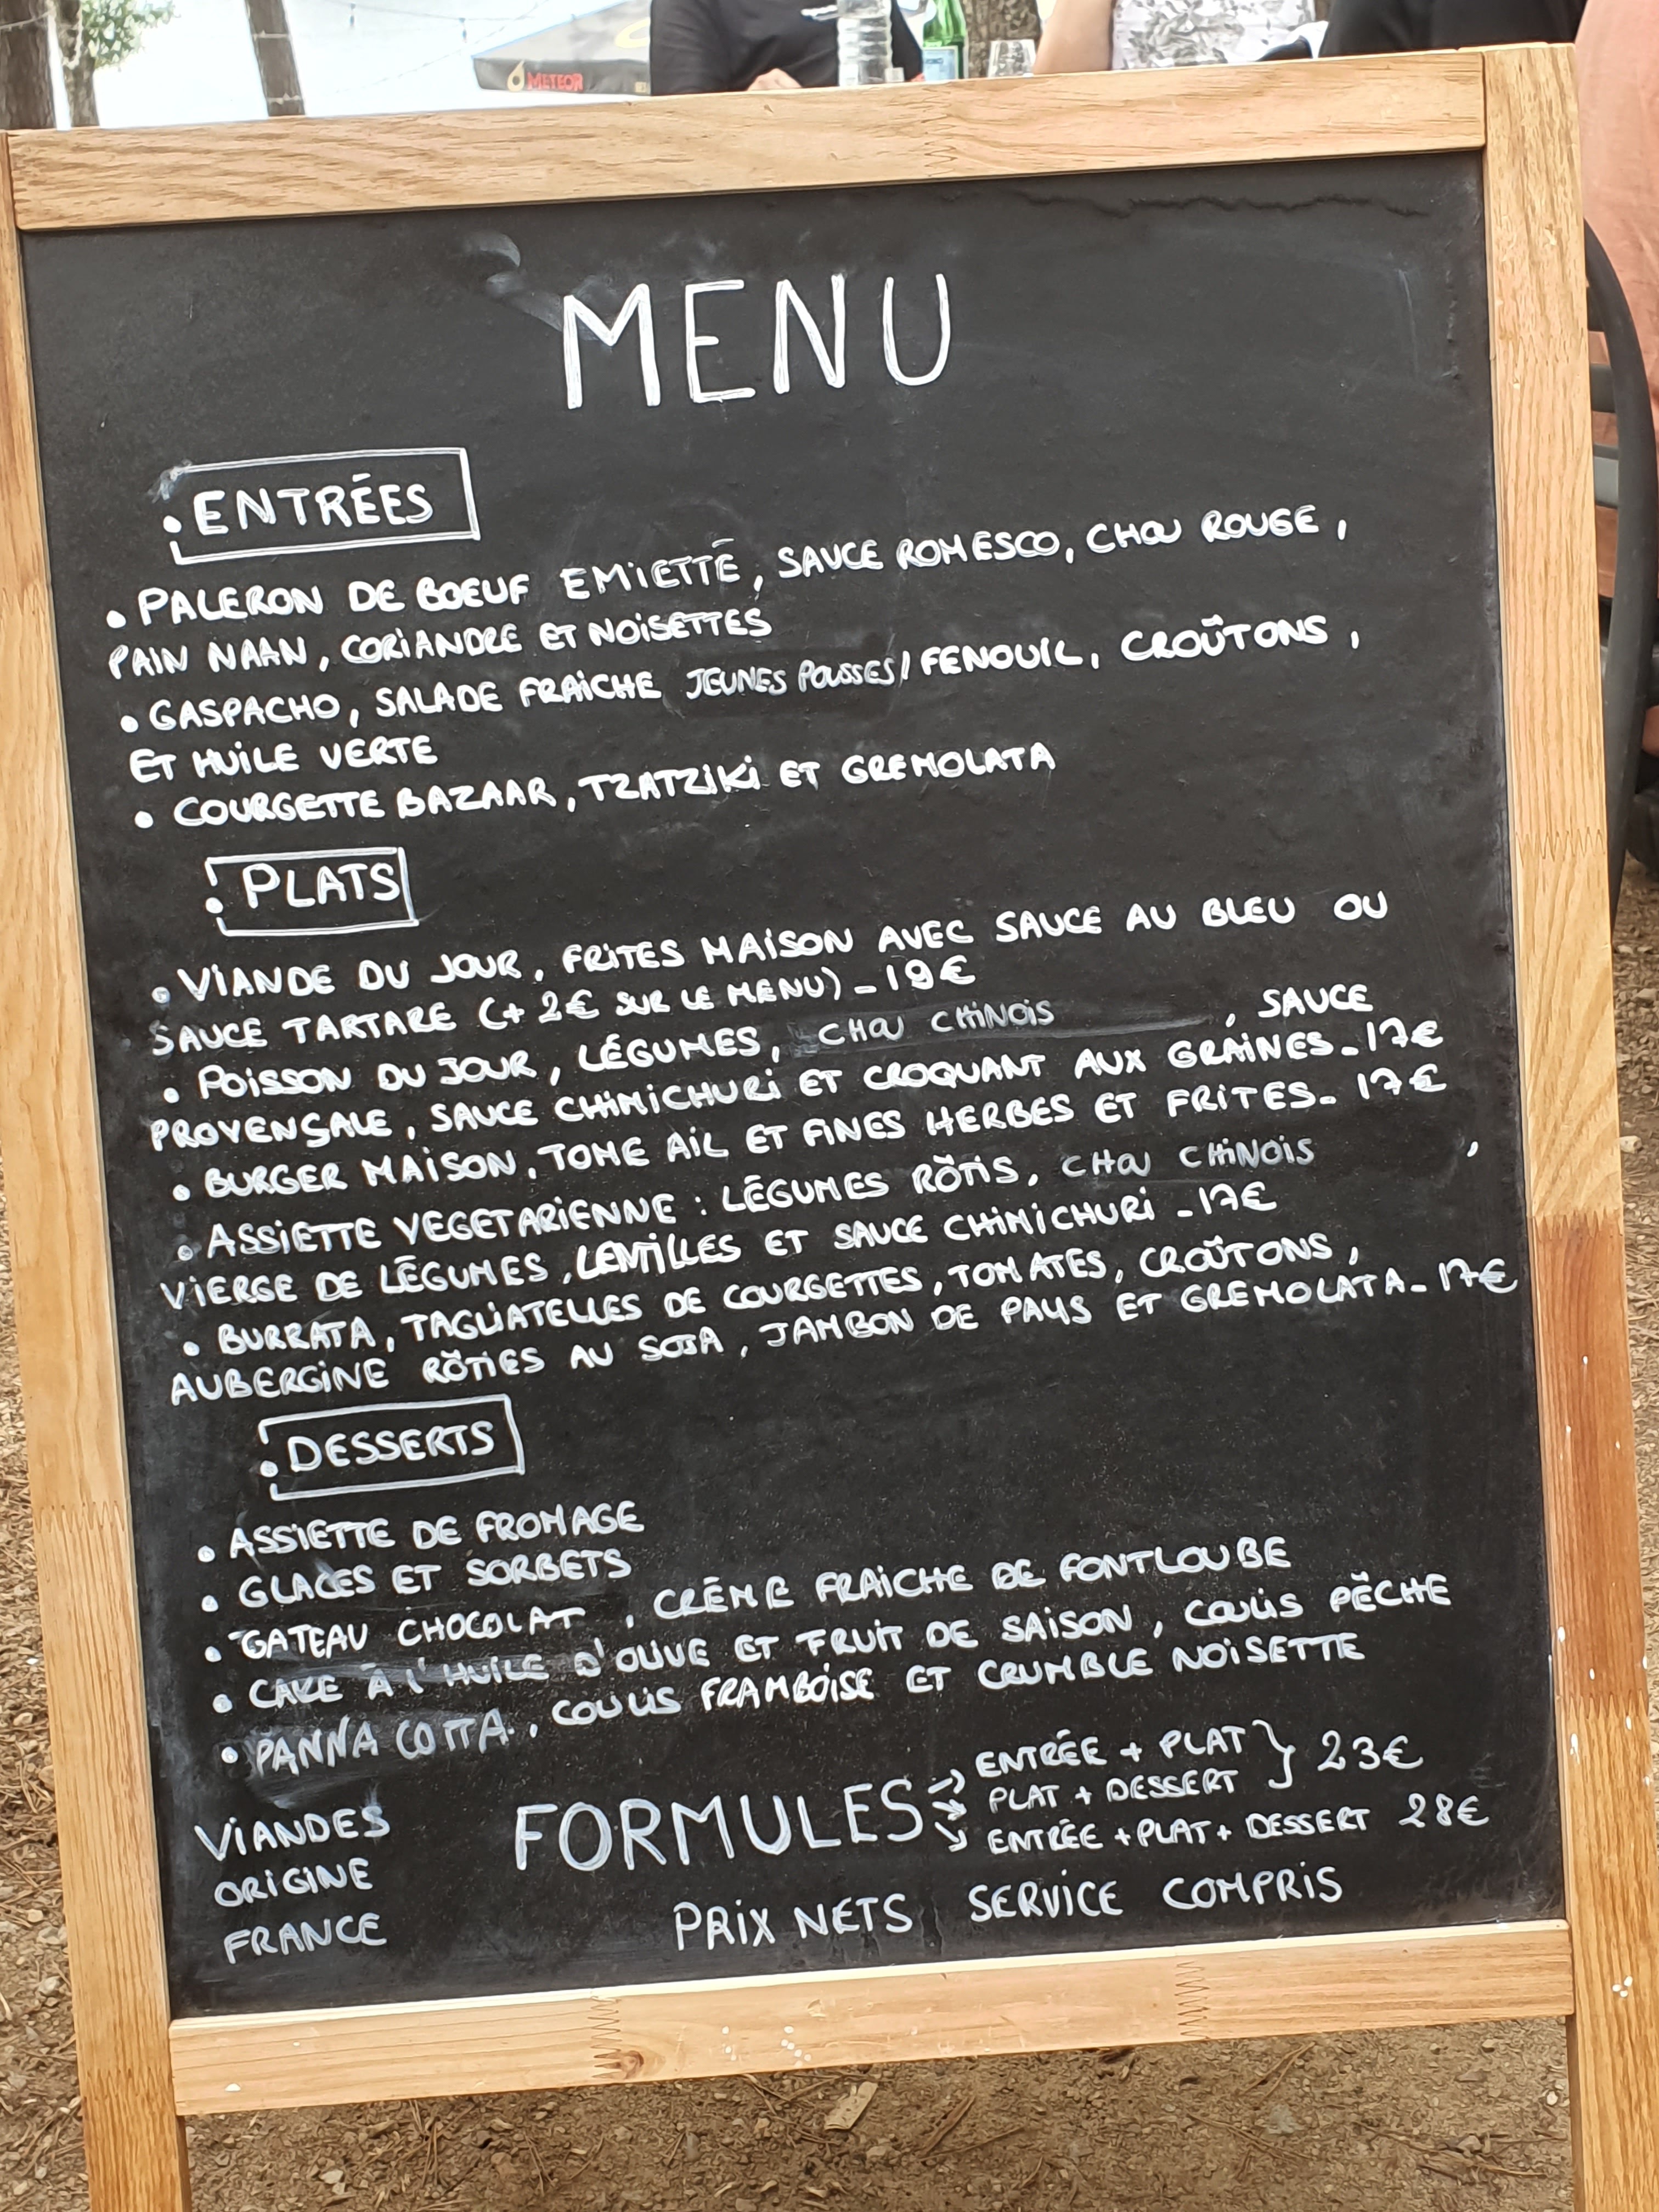 METEOR
MENU
• ENTRÉES
• PALERON DE BOEUF EMIETTÉ, SAUCE ROMESCO, CHOU ROUGE,
PAIN NAAN, CORIANDRE ET NOISETTES
• GASPACHO, SALADE FRAICHE JEUNES POUSSES, FENOUIL, CROÛTONS,
ET HUILE VERTE
• COURGETTE BAZAAR, TZATZIKI ET GREMOLATA
• PLATS
• VIANDE DU JOUR, FRITES MAISON AVEC SAUCE AU BLEU OU
SAUCE TARTARE (+ 2€ SUR LE MENU) - 19€
• POISSON DU JOUR, LÉGUMES, CHOU CHINOIS, SAUCE
PROVENÇALE, SAUCE CHIMICHURI ET CROQUANT AUX GRAINES - 17€
• BURGER MAISON, TOME AIL ET FINES HERBES ET FRITES - 17€
• ASSIETTE VEGETARIENNE : LÉGUMES RÔTIS, CHOU CHINOIS,
VIERGE DE LÉGUMES, LENTILLES ET SAUCE CHIMICHURI - 17€
• BURRATA, TAGLIATELLES DE COURGETTES, TOMATES, CROÛTONS,
AUBERGINE RÔTIES AU SOJA, JAMBON DE PAYS ET GREMOLATA - 17€
• DESSERTS
• ASSIETTE DE FROMAGE
• GLACES ET SORBETS
• GATEAU CHOCOLAT, CRÈME FRAICHE DE FONTLOUBE
• CAKE À L'HUILE D'OLIVE ET FRUIT DE SAISON, COULIS PÊCHE
• PANNA COTTA, COULIS FRAMBOISE ET CRUMBLE NOISETTE
VIANDES
ORIGINE
FRANCE
FORMULES → ENTRÉE + PLAT } 23€
→ PLAT + DESSERT
→ ENTRÉE + PLAT + DESSERT 28€
PRIX NETS SERVICE COMPRIS